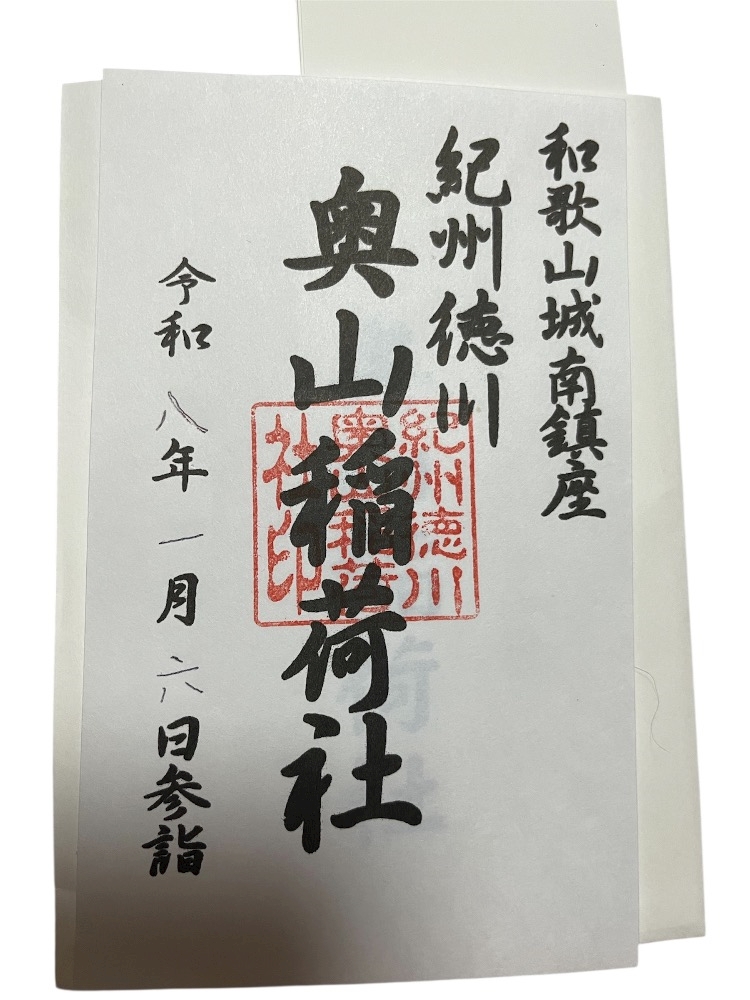 和歌山城南鎮座
紀州徳川
奥山稲荷社
紀州徳川
奥山稲荷
社印
令和八年一月六日参詣